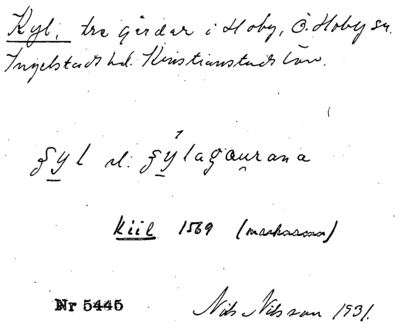 Kyl, tre gårdar i Hoby, Ö. Hoby sn.
Ingelstads hd. Kristianstads län.
ʒyl el. ʒýlagæurana
Kiil 1569
Nr 5445
Nils Nilsson 1931.